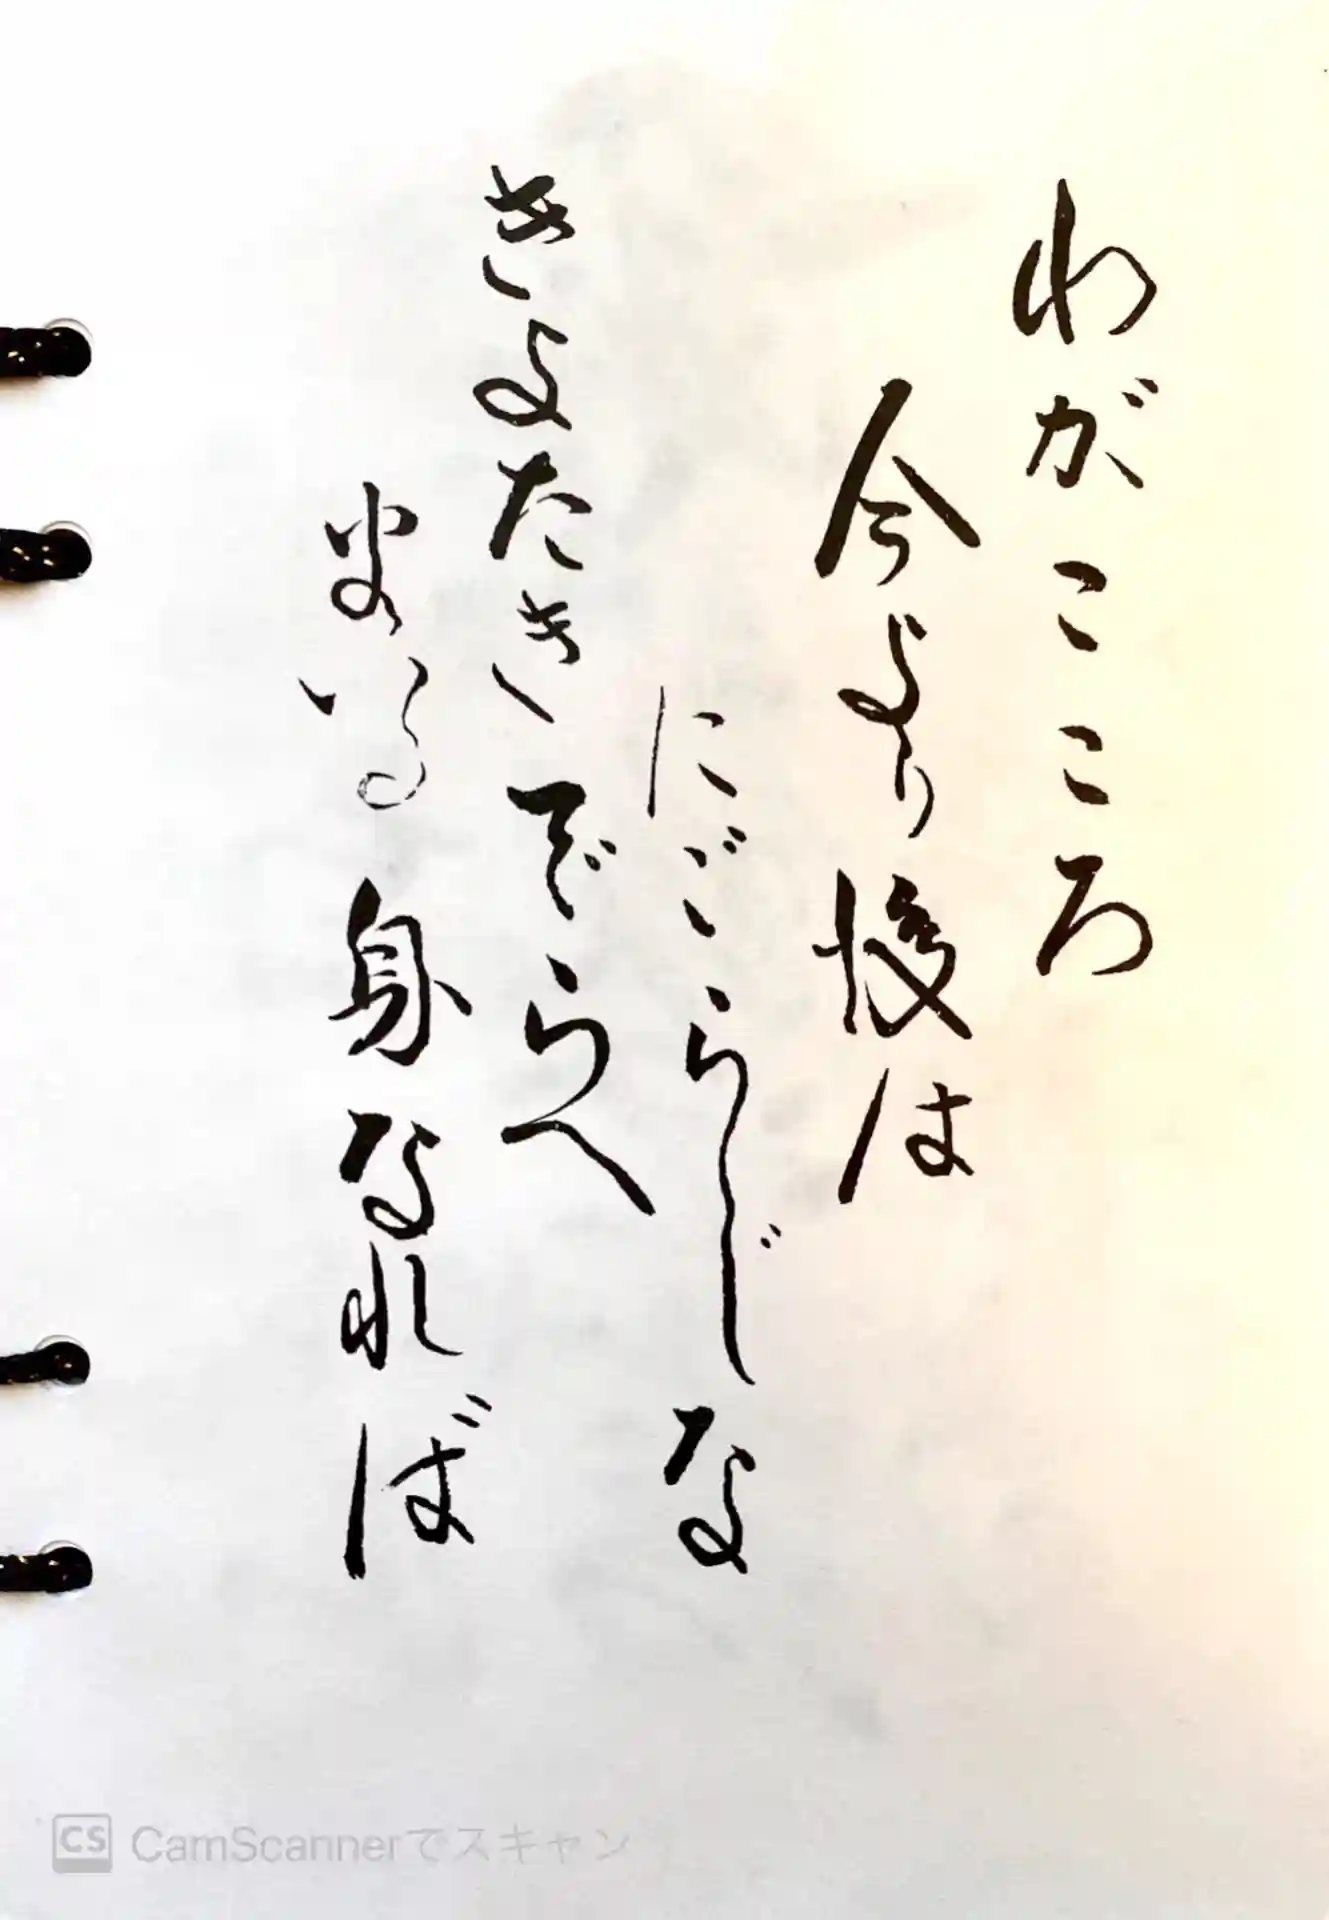 わがこころ
今より後は
にごらじな
きよたきでらへ
まいる身なれば
CS CamScannerでスキャン